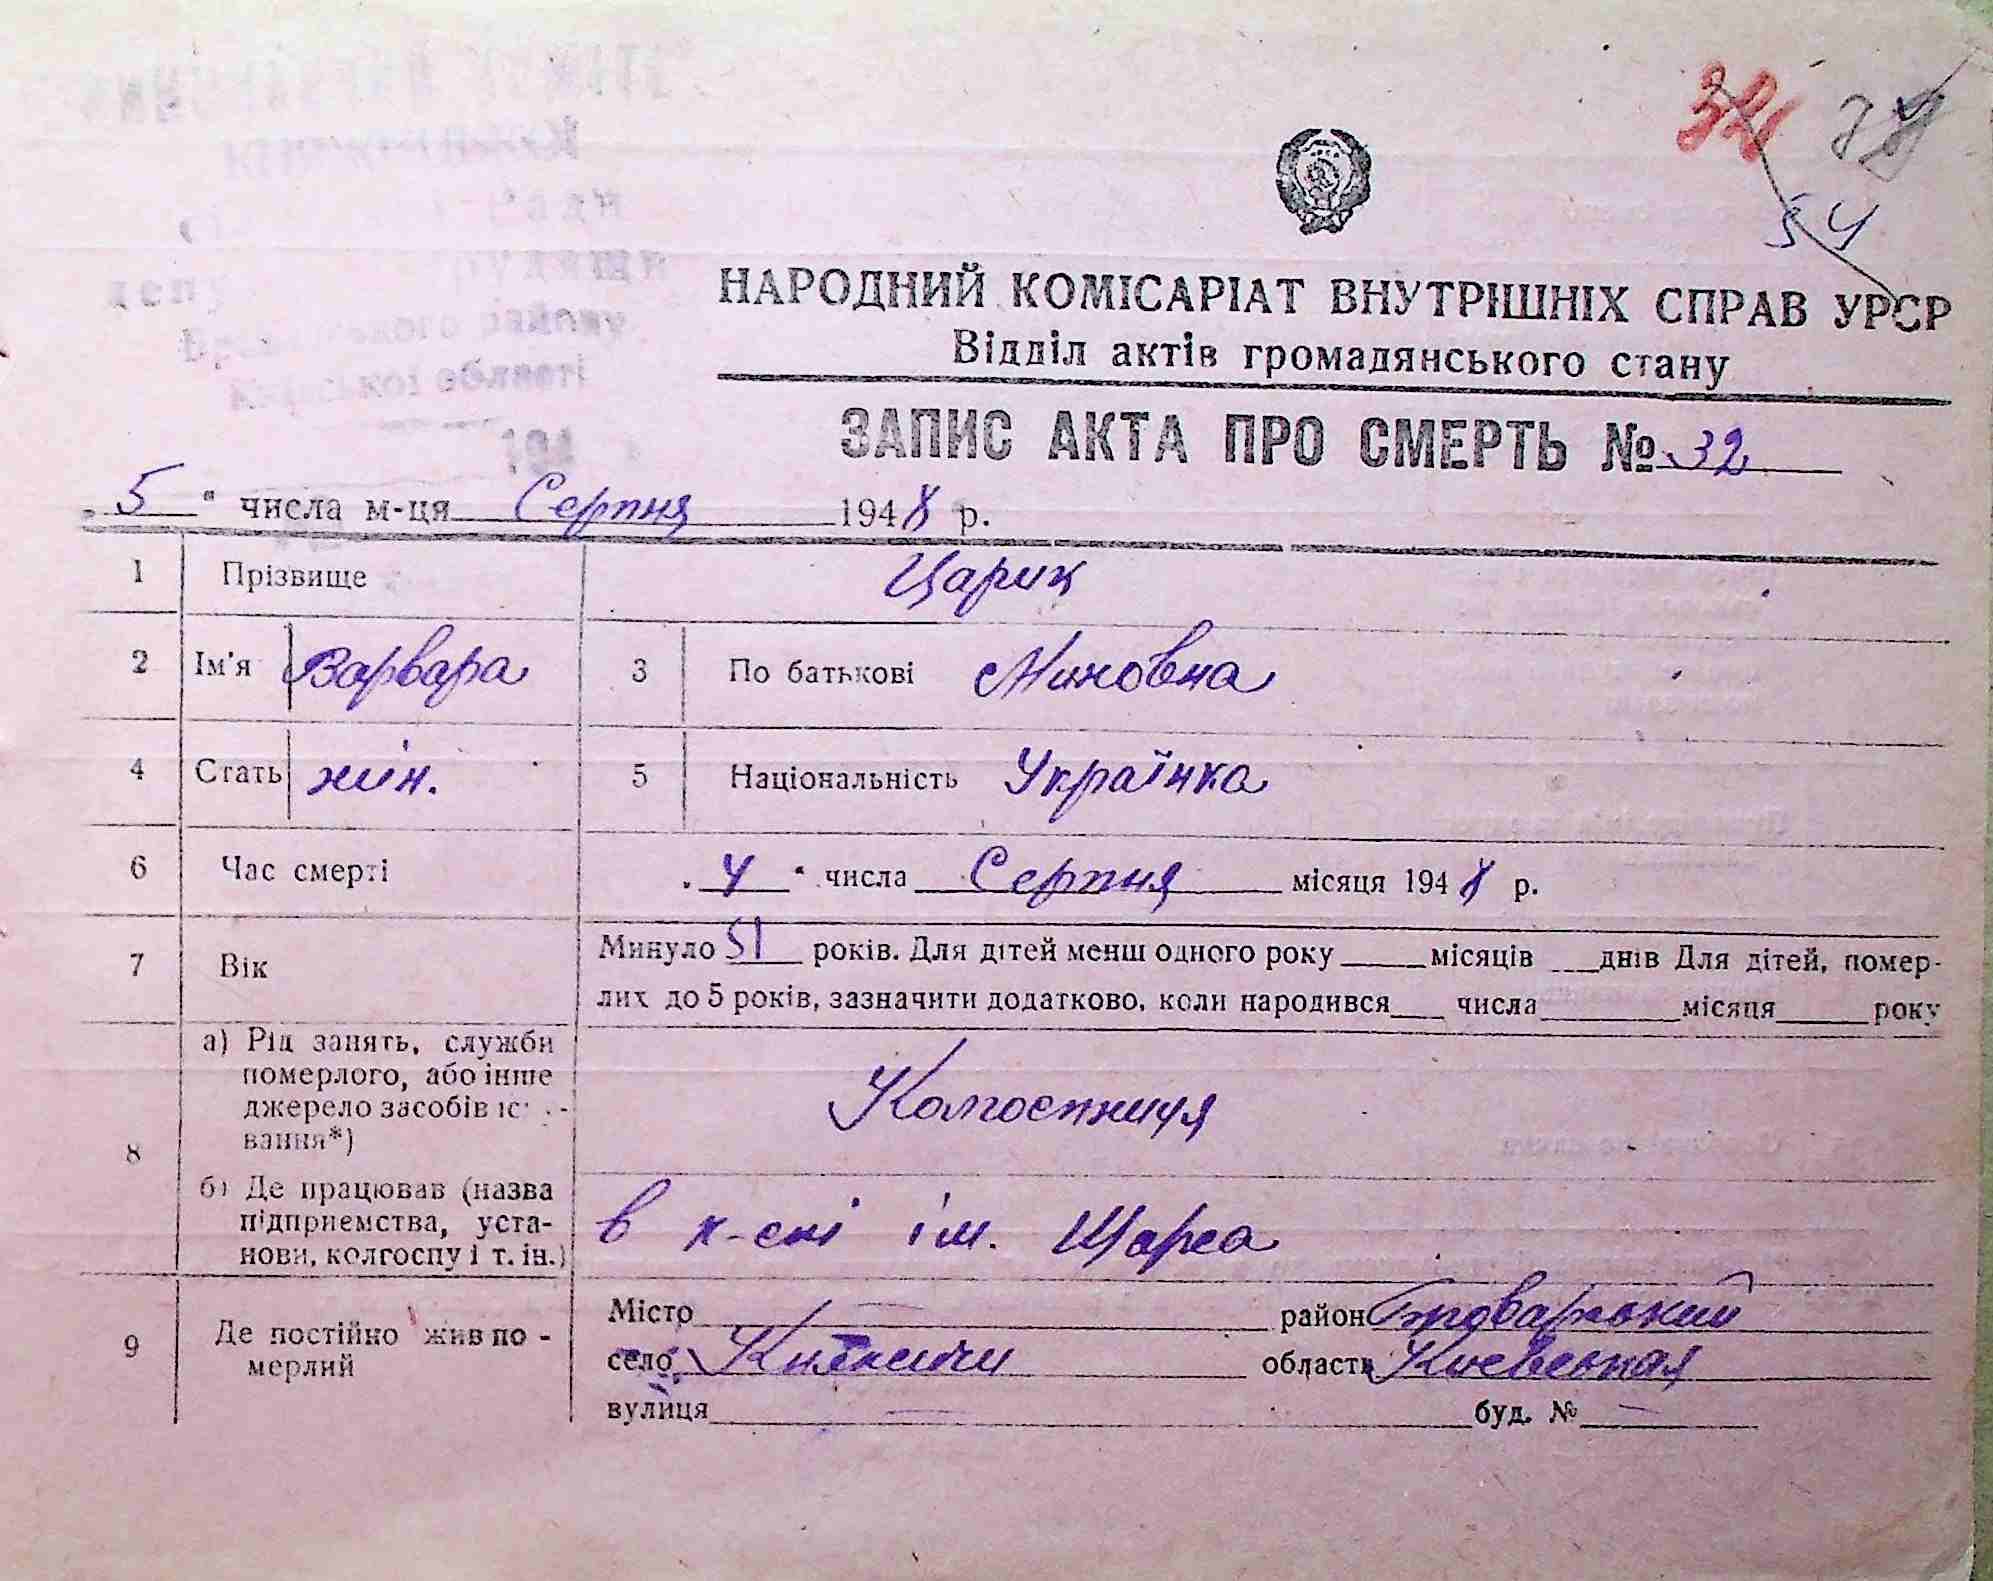 321 78
54
НАРОДНИЙ КОМІСАРІАТ ВНУТРІШНІХ СПРАВ УРСР
Відділ актів громадянського стану
ЗАПИС АКТА ПРО СМЕРТЬ № 32
„ 5 " числа м-ця Серпня 1948 р.
1 Прізвище Царик
2 Ім'я Варвара 3 По батькові Миновна
4 Стать жін. 5 Національність Українка
6 Час смерті „ 4 " числа Серпня місяця 1948 р.
7 Вік Минуло 51 років. Для дітей менш одного року місяців днів Для дітей, помер-
лих до 5 років, зазначити додатково, коли народився числа місяця року
8 а) Рід занять, служби
померлого, або інше
джерело засобів
вання*)
Колгоспниця
б) Де працював (назва
підприємства, уста-
нови, колгоспу і т. ін.)
в к-спі ім. Щорса
9 Де постійно жив по-
мерлий
Місто — район Броварський
село Княжичи область Киевская
вулиця — буд. № —